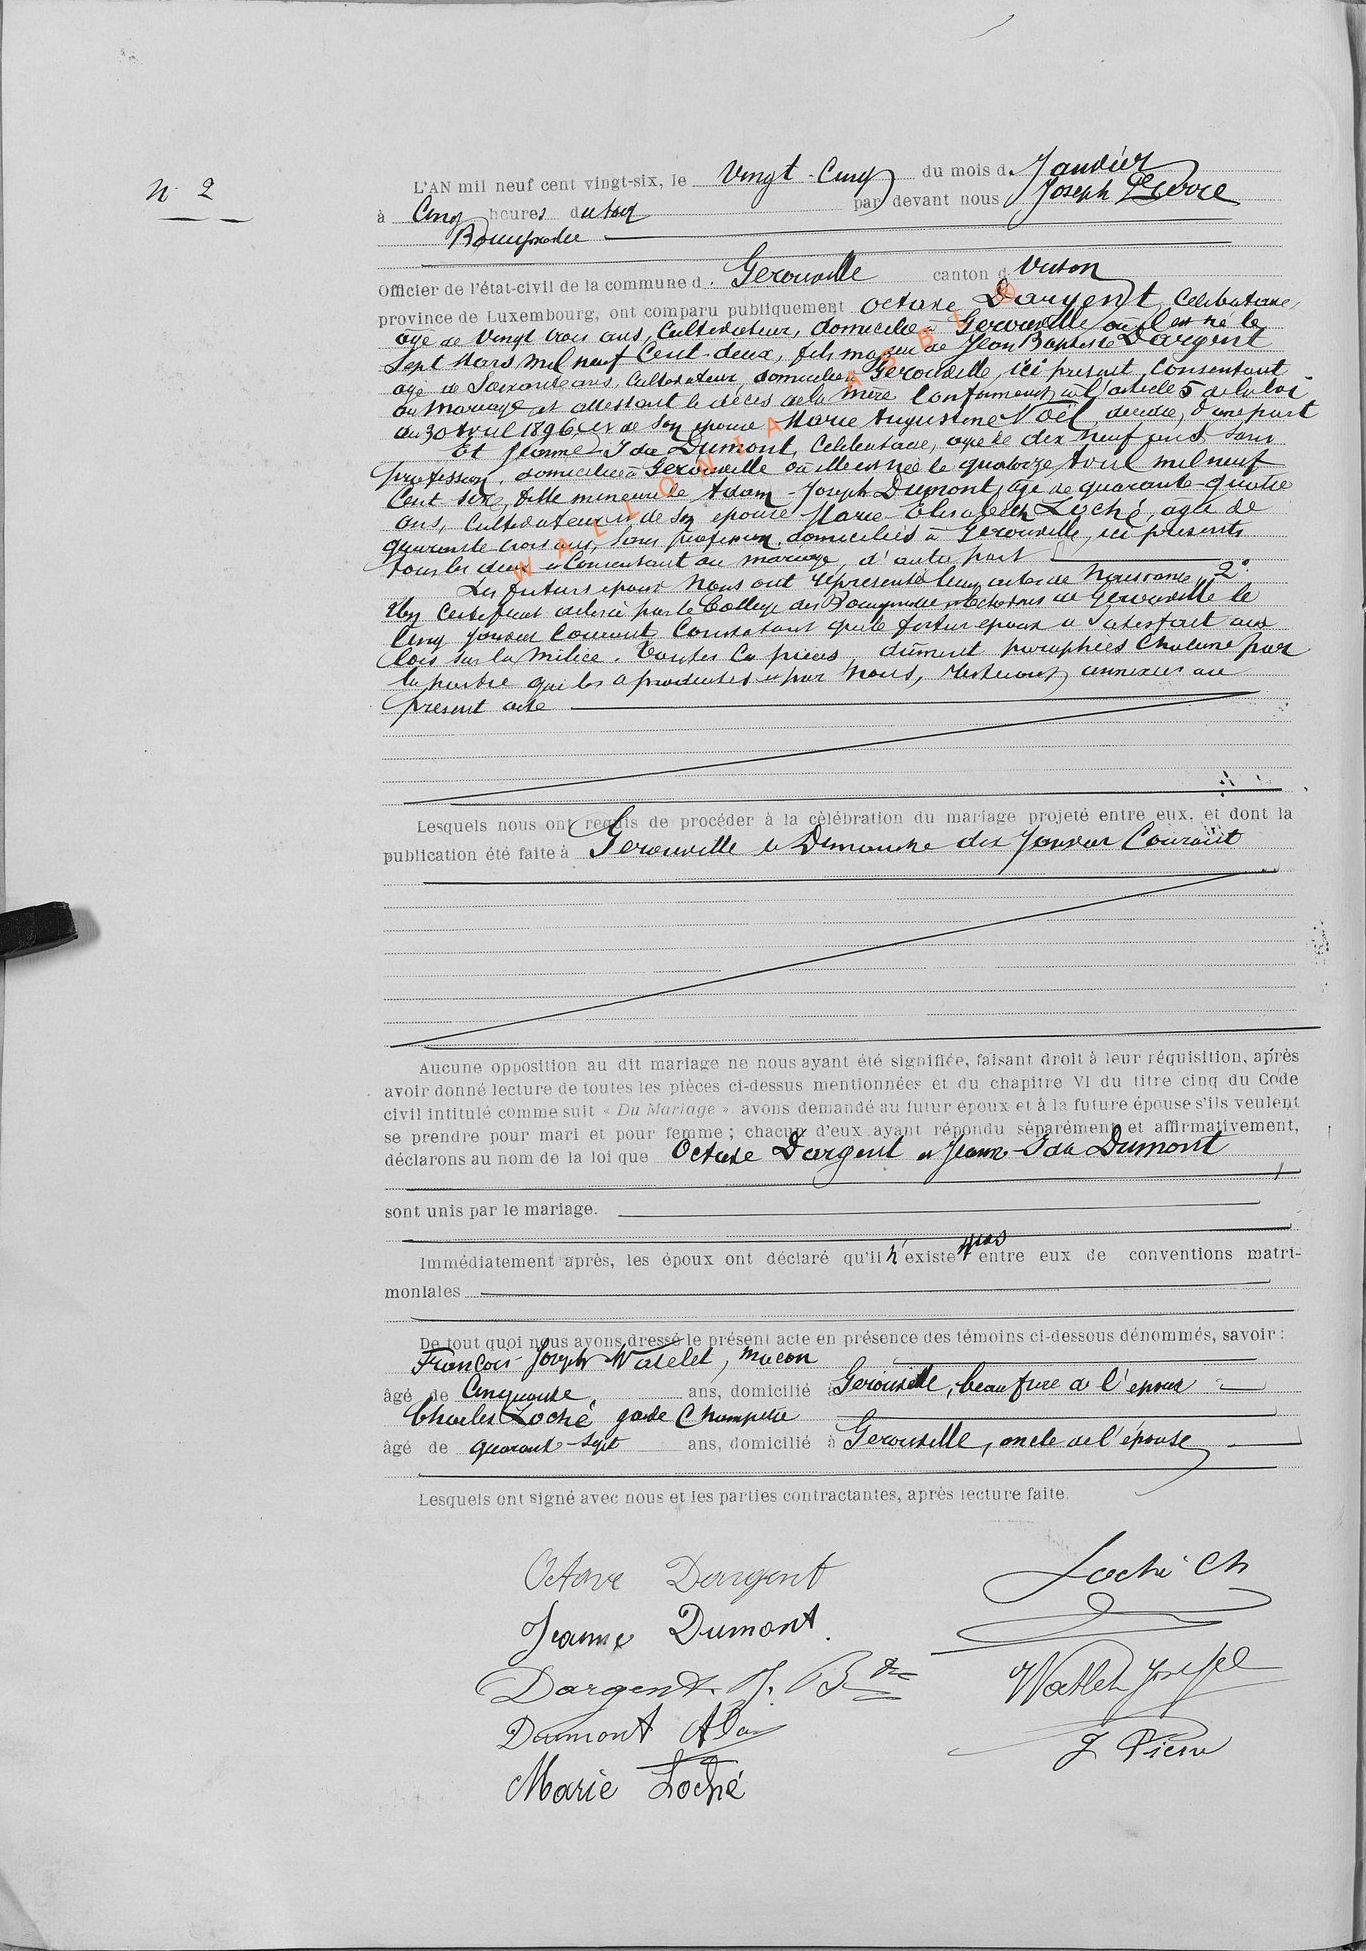 N° 2
L'AN mil neuf cent vingt-six, le Vingt-Cinq du mois d. Janvier
à Cinq heures du soir par devant nous Joseph Pierre
Bourgmestre
Officier de l'état-civil de la commune d. Gerouville canton d Virton
province de Luxembourg, ont comparu publiquement Octave Dargent, Celibataire,
agé de vingt trois ans, Cultivateur, domicilié à Gerouville où il est né le
sept Mars mil neuf Cent-deux, fils majeur de Jean Baptiste Dargent
agé de Soixante ans, Cultivateur, domicilié à Gerouville, ici présent, Consentant
au Mariage et attestant le décès de la mère Conformément à l'article 5 de la loi
du 30 Avril 1896 et de son epouse Marie Augustine Noël, décédée, d'une part
Et Jeanne-Ida Dumont, Celibataire, agée de dix neuf ans, sans
profession, domiciliée à Gerouville où elle est née le quatorze Avril mil neuf
Cent six, fille mineure de Adam-Joseph Dumont, âgé de quarante-quatre
ans, Cultivateur et de son epouse Marie-Elisabeth Loché, agée de
quarante trois ans, sans profession, domiciliés à Gerouville, ici présents
tous les deux et Consentant au mariage, d'autre part
Les futurs epoux Nous ont représenté leurs actes de Naissance, 2°
Un Certificat délivré par le Collège des Bourgmestre et Echevins de Gerouville le
Cinq Janvier Courant Constatant que le futur epoux a satisfait aux
lois sur la Milice. Toutes ces pièces, dûment paraphées chacune par
la partie qui les a produites et par Nous, resteront annexées au
présent acte
Lesquels nous ont requis de procéder à la célébration du mariage projeté entre eux, et dont la
publication été faite à Gerouville le Dimanche dix Janvier Courant
Aucune opposition au dit mariage ne nous ayant été signifiée, faisant droit à leur réquisition, après
avoir donné lecture de toutes les pièces ci-dessus mentionnées et du chapitre VI du titre cinq du Code
civil intitulé comme suit « Du Mariage » avons demandé au futur époux et à la future épouse s'ils veulent
se prendre pour mari et pour femme ; chacun d'eux ayant répondu séparément et affirmativement,
déclarons au nom de la loi que Octave Dargent et Jeanne-Ida Dumont
sont unis par le mariage.
Immédiatement après, les époux ont déclaré qu'il n'existe pas entre eux de conventions matri-
moniales
De tout quoi nous avons dressé le présent acte en présence des témoins ci-dessous dénommés, savoir :
François-Joseph Watelet, maçon
âgé de Cinquante ans, domicilié à Gerouville, beau frère de l'époux
Charles Loché garde Champetre
âgé de quarante-sept ans, domicilié à Gerouville, oncle de l'épouse
Lesquels ont signé avec nous et les parties contractantes, après lecture faite.
Octave Dargent
Loché Ch
Jeanne Dumont
Dargent J. Bte
Watlet Joseph
Dumont Adam
J Pierre
Marie Loché
WALLONIA ASBL ®